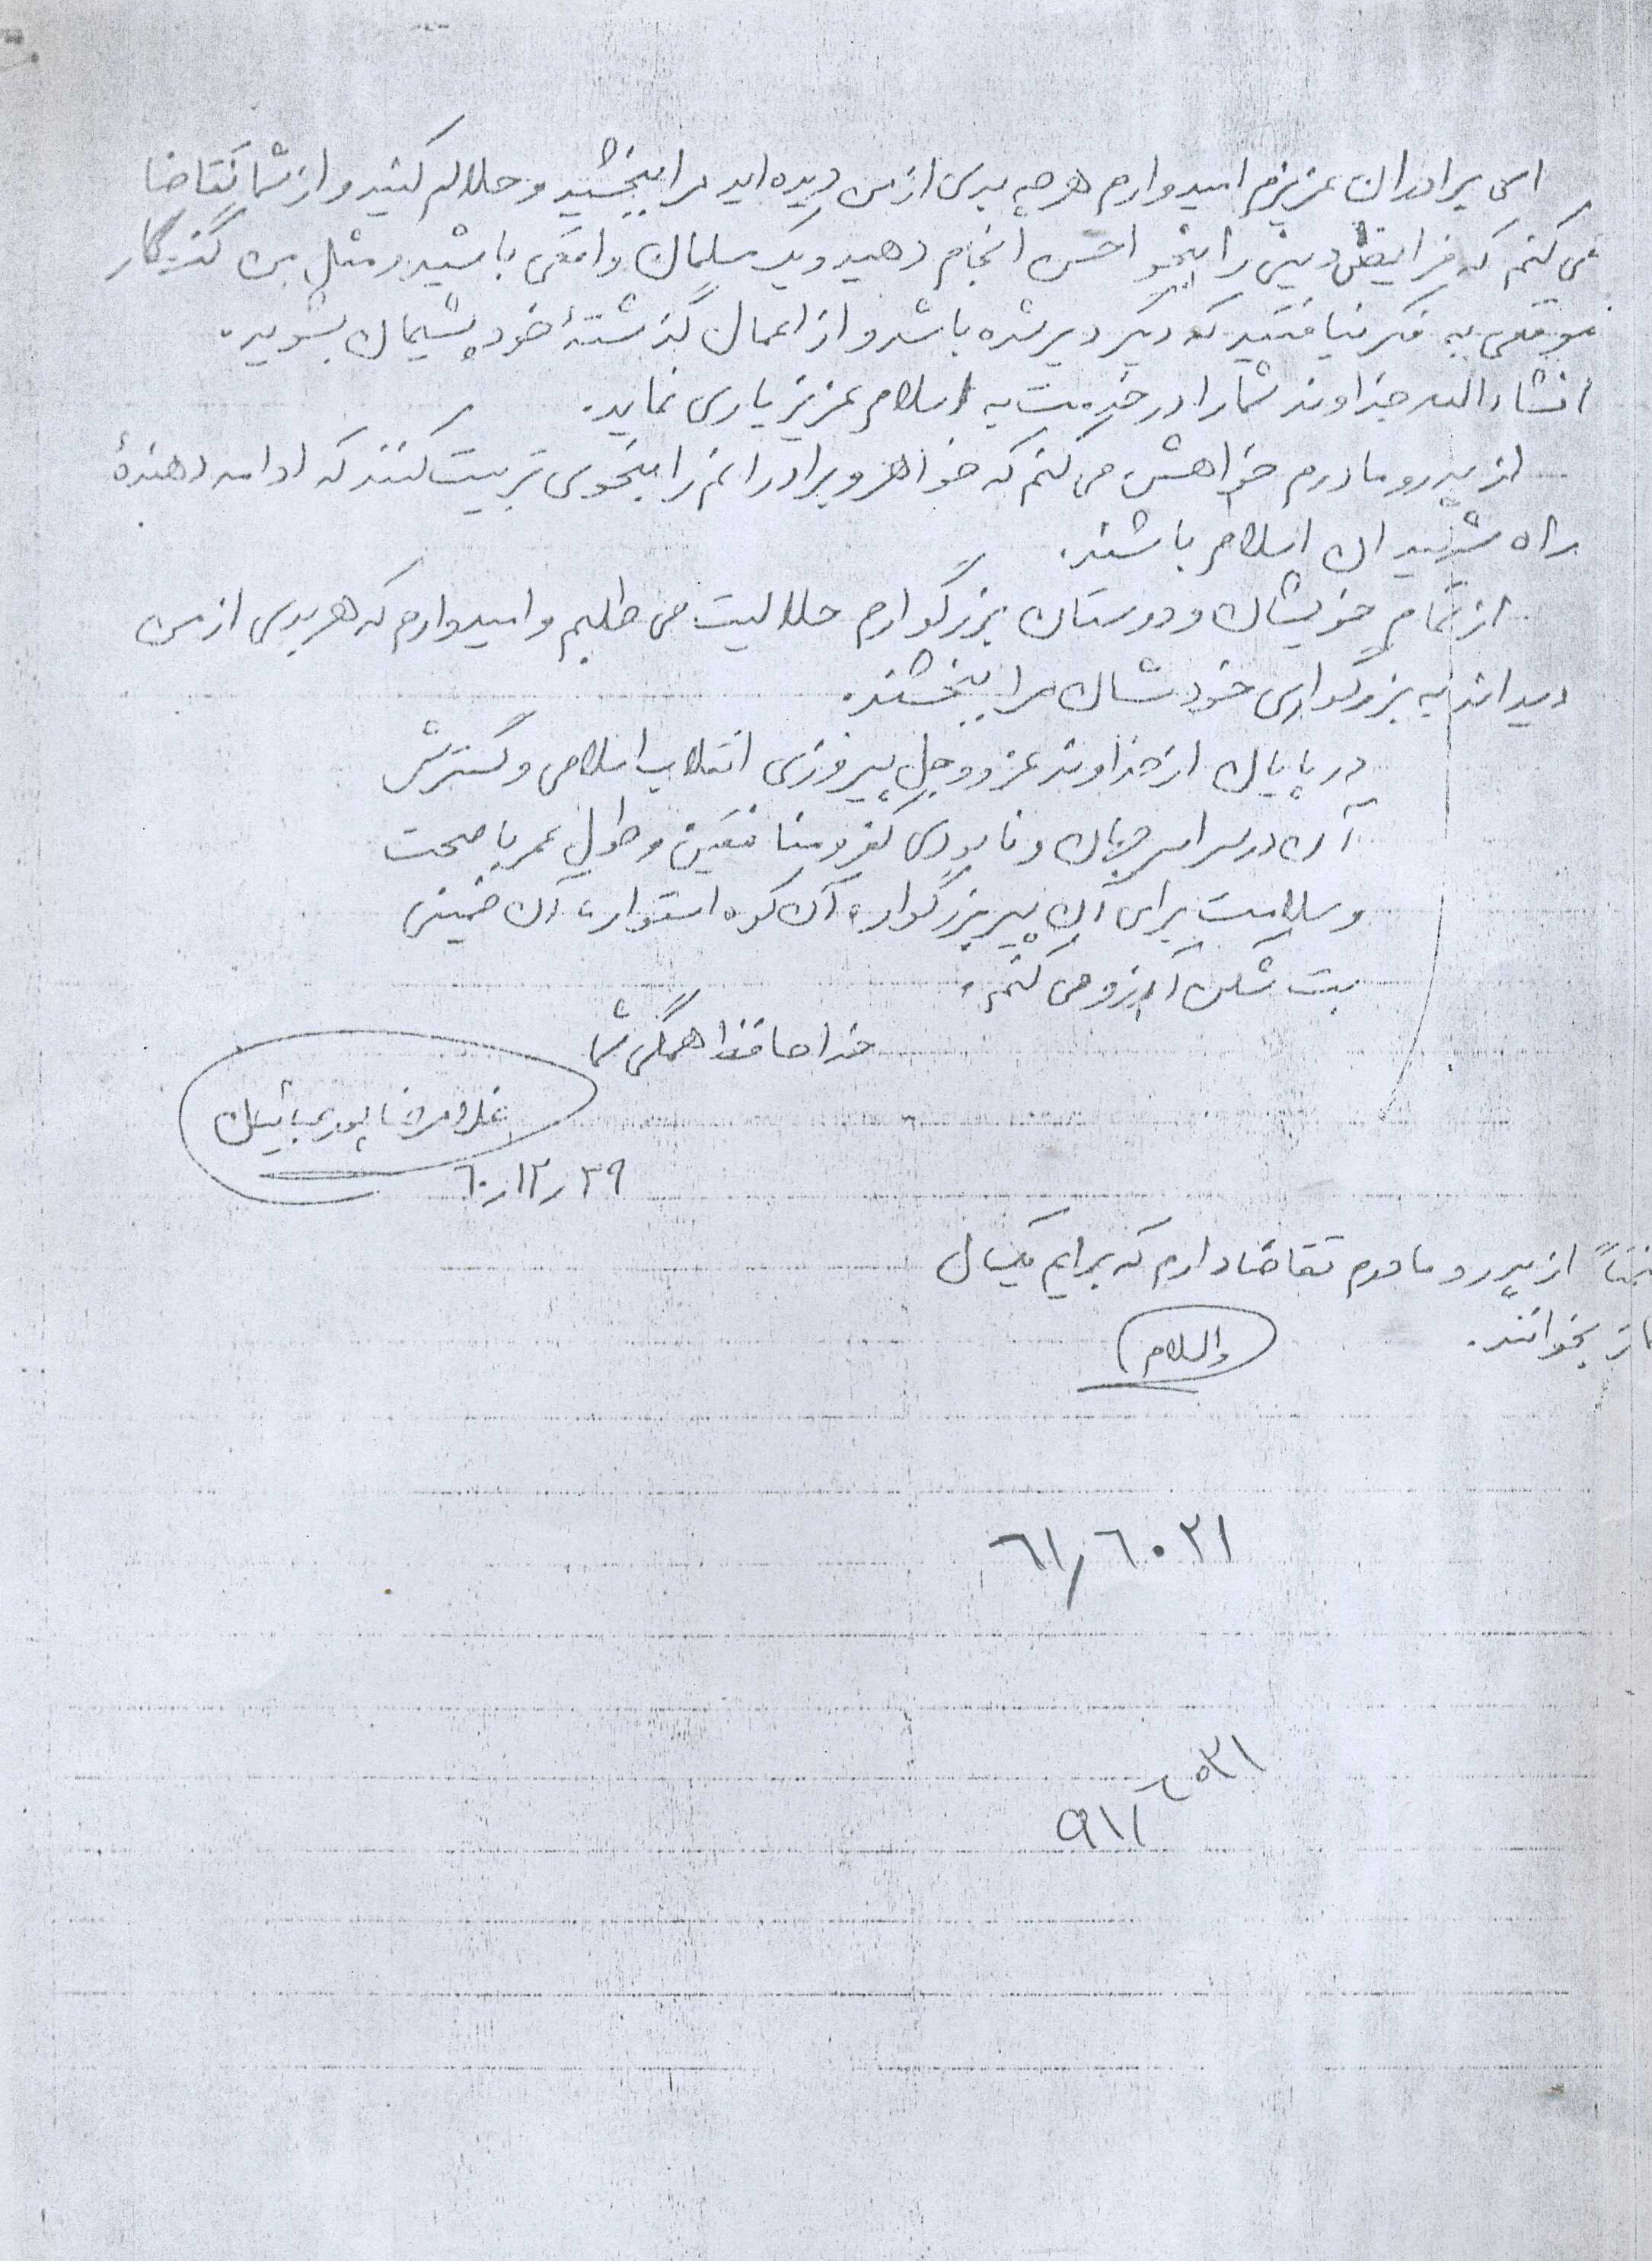 ای برادران عزیزم امیدوارم هرچه بدی از من دیده‌اید مرا ببخشید و حلالم کنید و از شما تقاضا
می کنم که فرایض دینی را بنحو احسن انجام دهید و یک مسلمان واقعی باشید و مثل من گنهکار
موقعی به فکر نیافتید که دیگر دیر شده باشد و از اعمال گذشتهٔ خود پشیمان بشوید.
انشاءالله خداوند شما را در خدمت به اسلام عزیز یاری نماید.
از پدر و مادرم خواهش می کنم که خواهر و برادرانم را بنحوی تربیت کنند که ادامه دهندهٔ
راه شهیدان اسلام باشند.
از تمام خویشان و دوستان بزرگوارم حلالیت می طلبم و امیدوارم که هر بدی از من
دیداند به بزرگواری خودشان مرا ببخشند.
در پایان از خداوند عزو وجل پیروزی انقلاب اسلامی و گسترش
آن در سراسر جهان و نابودی کفر و منافقین و طول عمر با صحت
و سلامت برای آن پیر بزرگوار، آن کوه استوار، آن خمینی
بت شکن آرزو می کنم.
خدا حافظ همگی شما
غلامرضا پور
۶۰/۱۲/۲۹
از پدر و مادرم تقاضا دارم که برایم یکسال
نماز بخوانند.
والسلام
۶۱/۶۰۲۱
۶۰۲۱
۹۱۱